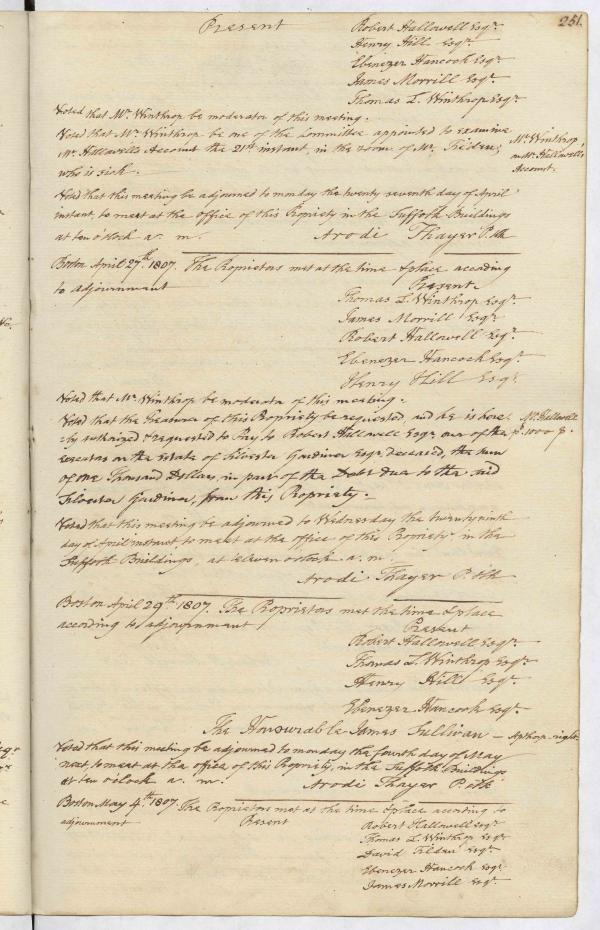 251.
Present
Robert Hallowell Esqr.
Henry Hill Esqr.
Ebenezer Hancock Esqr.
James Morrill Esqr.
Thomas L. Winthrop Esqr.
Voted that Mr. Winthrop be moderator of this meeting.
Voted that Mr. Winthrop be one of the Committee appointed to examine
Mr. Hallowells Account the 21st instant, in the room of Mr. Tilden,
who is sick.
Mr. Winthrop,
Mr. Hallowells
Account.
Voted that this meeting be adjourned to monday the twenty seventh day of April
instant, to meet at the office of this Propriety in the Suffolk Buildings
at ten o'clock a. m. Arodi Thayer P. Clk
Boston April 27th 1807. The Proprietors met at the time & place according
to adjournment
Present.
Thomas L. Winthrop Esqr.
James Morrill Esqr.
Robert Hallowell Esqr.
Ebenezer Hancock Esqr.
Henry Hill Esqr.
Voted that Mr. Winthrop be moderator of this meeting.
Voted that the Treasurer of this Propriety be requested, and he is here-
=by authorized & requested to Pay to Robert Hallowell Esqr. one of the
executors on the estate of Silvester Gardiner Esqr. deceased, the sum
of one Thousand Dollars, in part of the Debt due to the said
Silvester Gardiner, from this Propriety.
Mr. Hallowell
1000
Voted that this meeting be adjourned to Wednesday the twenty ninth
day of April instant to meet at the office of this Propriety, in the
Suffolk Buildings, at eleven o'clock a. m.
Arodi Thayer P. Clk
Boston April 29th 1807. The Proprietors met the time & place
according to adjournment
Present
Robert Hallowell Esqr.
Thomas L. Winthrop Esqr.
Henry Hill Esqr.
Ebenezer Hancock Esqr.
The Honourable James Sullivan — Apthorp right.
Voted that this meeting be adjourned to monday the fourth day of May
next, to meet at the office of this Propriety, in the Suffolk Buildings
at ten o'clock a. m. Arodi Thayer P. Clk
Boston May 4th. 1807 The Proprietors met at the time & place according to
adjournment Present
Robert Hallowell Esqr.
Thomas L. Winthrop Esqr.
David Tilden Esqr.
Ebenezer Hancock Esqr.
James Morrill Esqr.